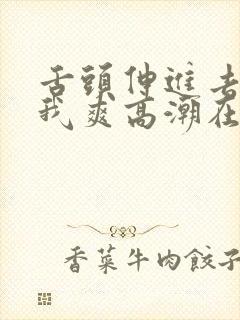 舌頭伸進去
我爽高潮在
香菜牛肉餃子